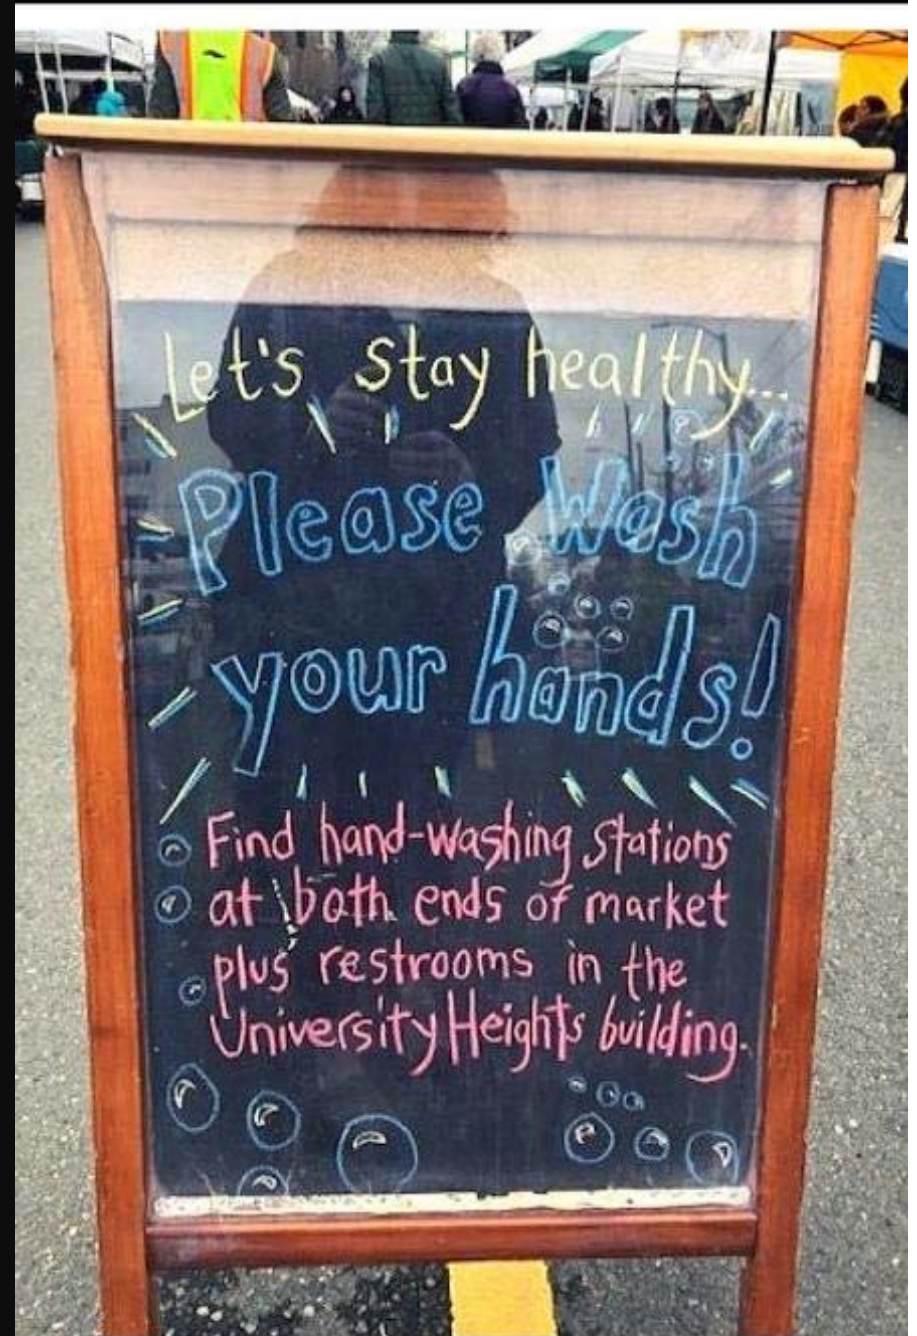 Let's stay healthy...
Please Wash
your hands!
Find hand-washing stations
at both ends of market
plus restrooms in the
University Heights building.